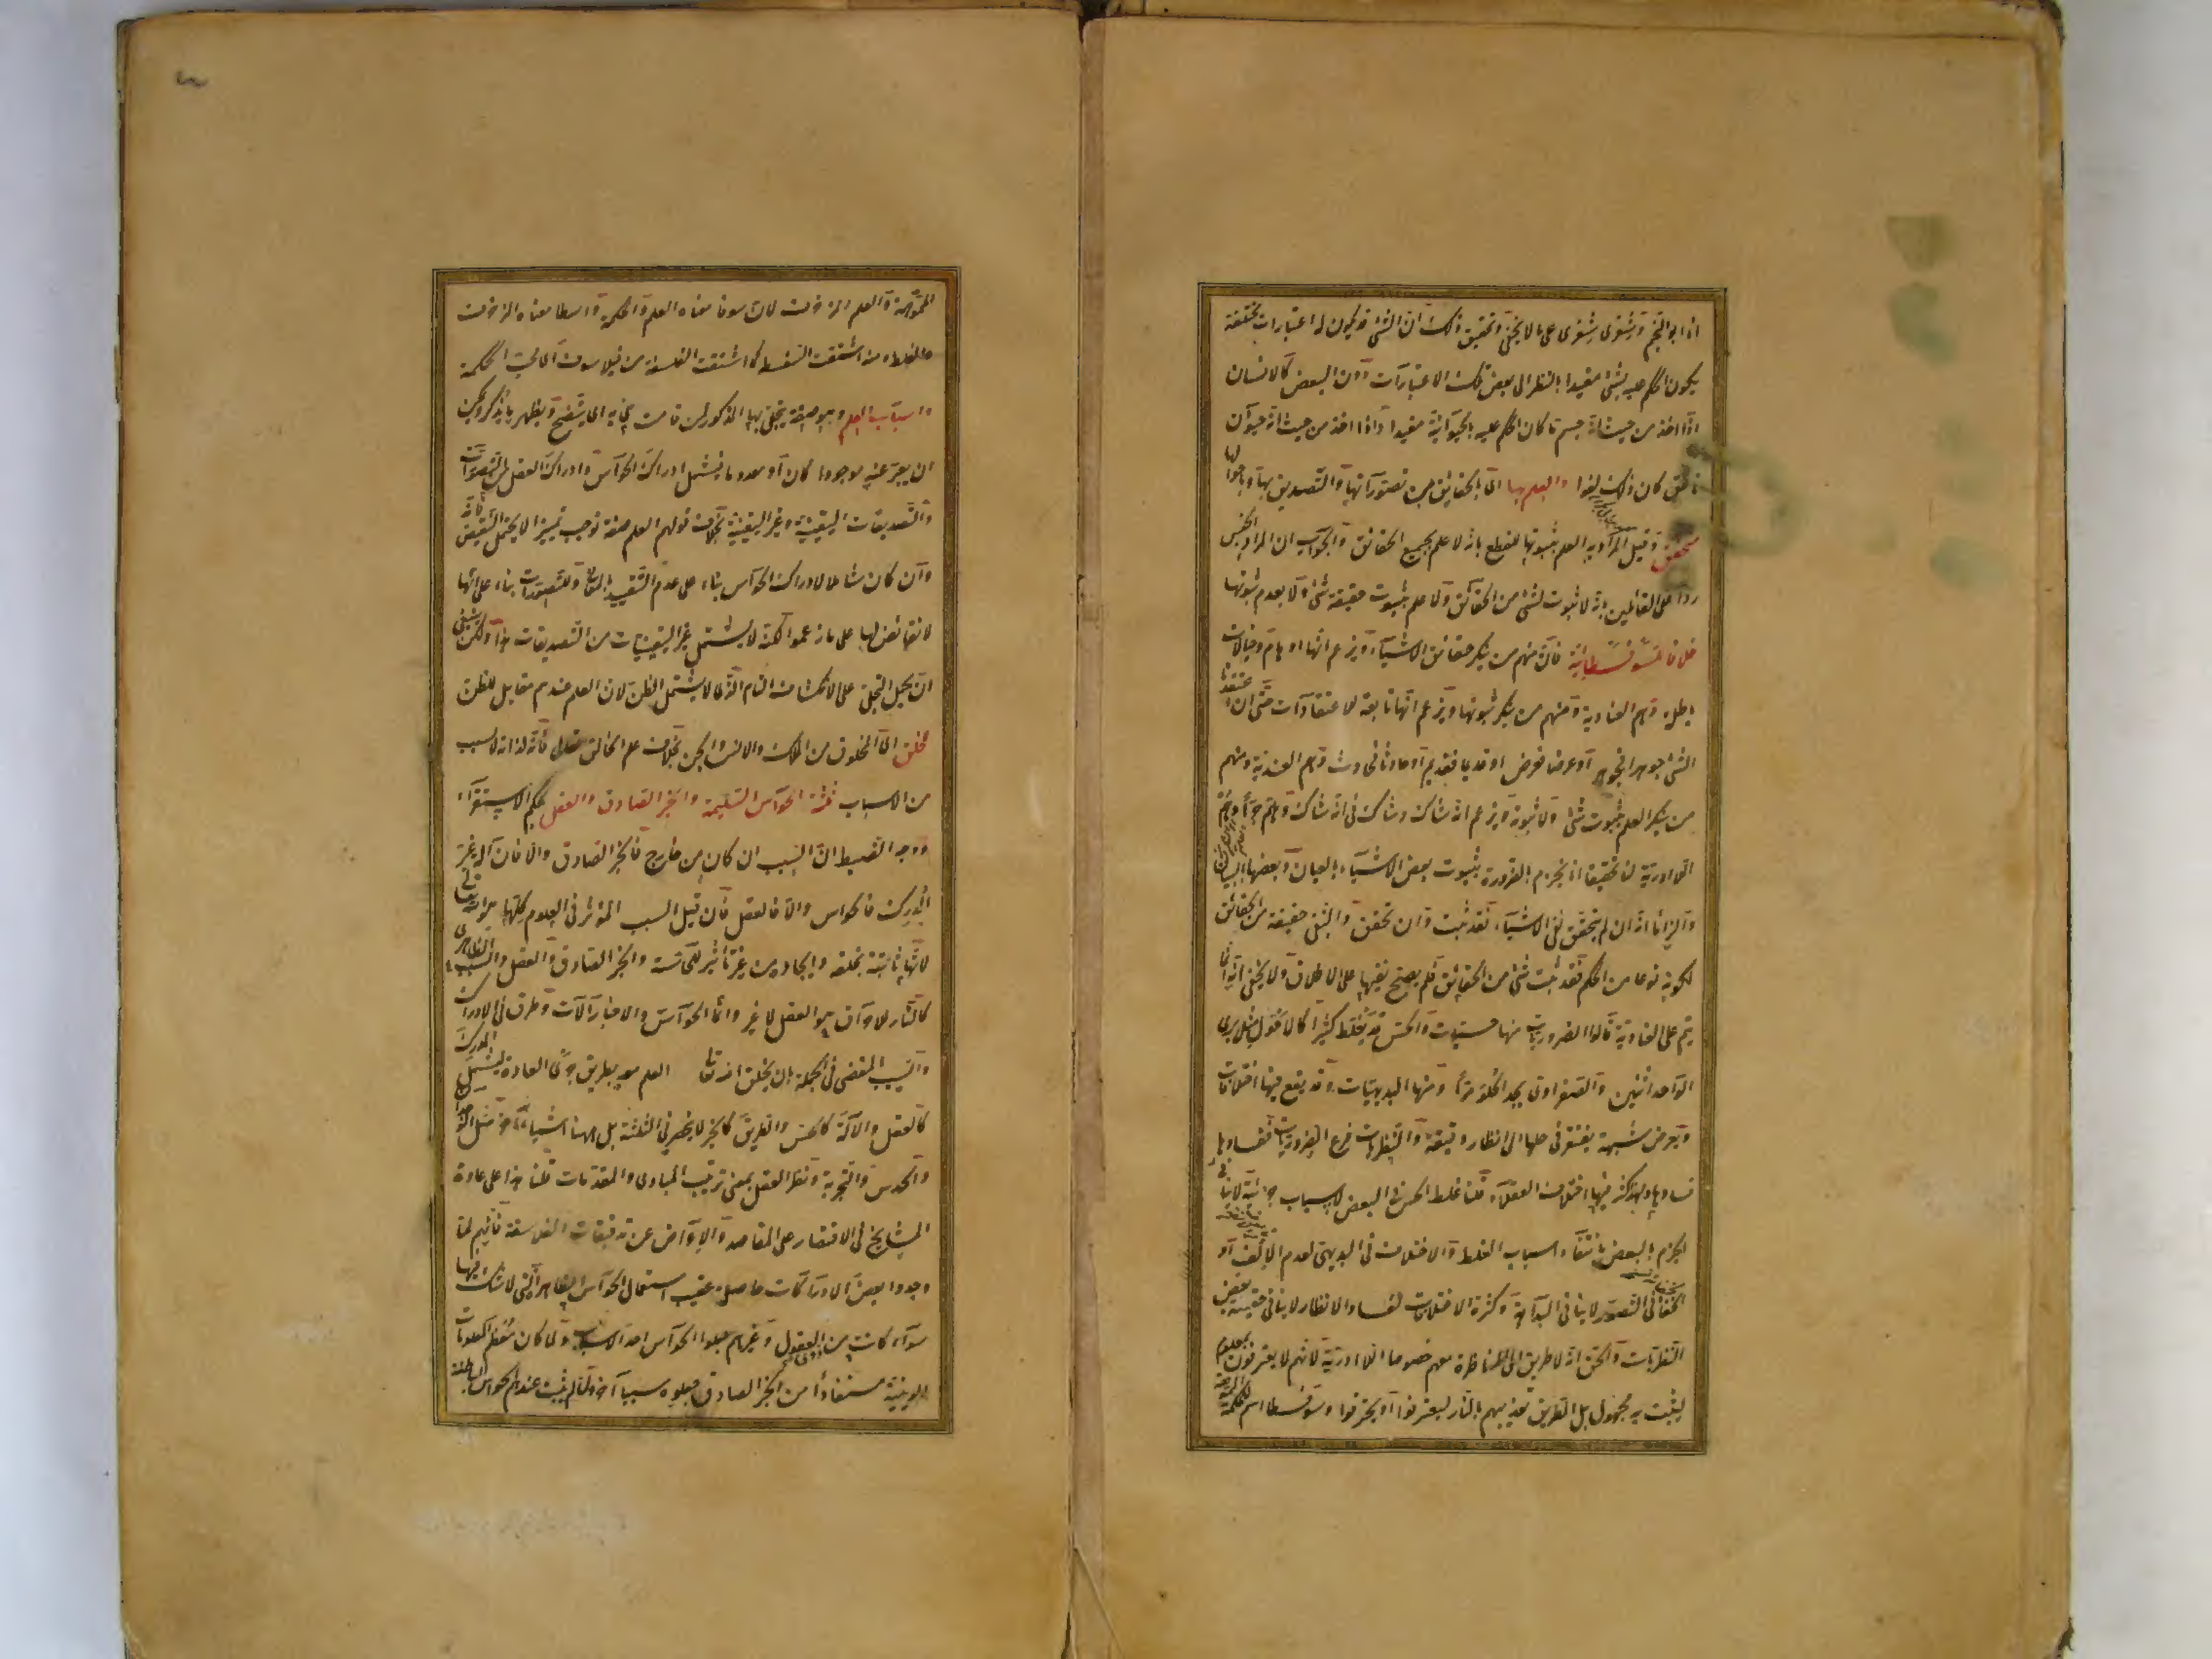 انا ابو النجم وشعرى شعرى على ما لا يخفى وتحقيق ذلك ان الشئ قد يكون له اعتبارات مختلفة
يكون الحكم عليه بشئ مفيدا بالنظر الى بعض تلك الاعتبارات دون البعض كالانسان
اذا اخذ من حيث انه جسم ما كان الحكم عليه بالحيوانية مفيدا واذا اخذ من حيث انه حيوان
ناطق كان ذلك لغوا والعلم بها اى بالحقائق من تصوراتها والتصديق بها وباحوالها
متحقق وقيل المراد به العلم بثبوتها للقطع بانه لا علم بجميع الحقائق والجواب ان المراد الجنس
ردا على القائلين بانه لا ثبوت لشئ من الحقائق ولا علم بثبوت حقيقة شئ ولا بعدم ثبوتها
خلافا للسوفسطائية فان منهم من ينكر حقائق الاشياء ويزعم انها اوهام وخيالات
باطلة وهم العنادية ومنهم من ينكر ثبوتها ويزعم انها تابعة للاعتقادات حتى ان اعتقدنا
الشئ جوهرا فجوهر او عرضا فعرض او قديما فقديم او حادثا فحادث وهم العندية ومنهم
من ينكر العلم بثبوت شئ ولا ثبوته ويزعم انه شاك وشاك فى انه شاك وهلم جرا وهم
اللاادرية لنا تحقيقا انا نجزم بالضرورة بثبوت بعض الاشياء بالعيان وبعضها بالبيان
والزاما انه ان لم يتحقق نفى الاشياء فقد ثبت وان تحقق والنفى حقيقة من الحقائق
لكونه نوعا من الحكم فقد ثبت شئ من الحقائق فلم يصح نفيها على الاطلاق ولا يخفى انه انما
يتم على العنادية قالوا الضروريات منها حسيات والحس قد يغلط كثيرا كالاحول يرى
الواحد اثنين والصفراوى يجد الحلو مرا ومنها البديهيات وقد يقع فيها اختلافات
وتعرض شبهة يفتقر فى حلها الى انظار دقيقة والنظريات فرع الضروريات ففسادها
فسادها ولهذا كثر فيها اختلاف العقلاء قلنا غلط الحس فى البعض لاسباب جزئية لا ينافى
الجزم بالبعض بانتفاء اسباب الغلط والاختلاف فى البديهى لعدم الالف او
الخفاء فى التصور لا ينافى البداهة وكثرة الاختلافات لفساد الانظار لا ينافى حقية بعض
النظريات والحق انه لا طريق الى المناظرة معهم خصوصا اللاادرية لانهم لا يعترفون بمعلوم
ليثبت به مجهول بل الطريق تعذيبهم بالنار ليعترفوا او يحترقوا وسوفسطا اسم للحكمة
المموهة والعلم المزخرف لان سوفا معناه العلم والحكمة واسطا معناه المزخرف
والغلط ومنه اشتقت السفسطة كما اشتقت الفلسفة من فيلاسوف اى محب الحكمة
واسباب العلم وهو صفة يتجلى بها المذكور لمن قامت هى به اى يتضح ويظهر ما يذكر ويمكن
ان يعبر عنه موجودا كان او معدوما فيشمل ادراك الحواس وادراك العقل من التصورات
والتصديقات اليقينية وغير اليقينية بخلاف قولهم العلم صفة توجب تمييزا لا يحتمل النقيض فانه
وان كان شاملا لادراك الحواس بناء على عدم التقييد بالمعانى وللتصورات بناء على انها
لا نقائض لها على ما زعموا لكنه لا يشتمل غير اليقينيات من التصديقات هذا ولكن ينبغى
ان يحمل التجلى على الانكشاف التام الذى لا يشتمل الظن لان العلم عندهم مقابل للظن
للخلق اى المخلوق من الملك والانس والجن بخلاف علم الخالق تعالى فانه لذاته لا بسبب
من الاسباب ثلثة الحواس السليمة والخبر الصادق والعقل بحكم الاستقراء
ووجه الضبط ان السبب ان كان من خارج فالخبر الصادق والا فان كان آلة غير
المدرك فالحواس والا فالعقل فان قيل السبب المؤثر فى العلوم كلها هو الله تعالى
لانها ثابتة بخلقه وايجاده من غير تاثير للحاسة والخبر الصادق والعقل والسبب الظاهرى
كالنار للاحراق هو العقل لا غير وانما الحواس والاخبار آلات وطرق فى الادراك
والسبب المفضى فى الجملة بان يخلق الله تعالى العلم معه بطريق جرى العادة ليشمل المدرك
كالعقل والآلة كالحس والطريق كالخبر لا ينحصر فى الثلثة بل ههنا اشياء اخر مثل الوجدان
والحدس والتجربة ونظر العقل بمعنى ترتيب المبادى والمقدمات قلنا هذا على عادة
المشايخ فى الاقتصار على المقاصد والاعراض عن تدقيقات الفلاسفة فانهم لما
وجدوا بعض الادراكات حاصلة عقيب استعمال الحواس الظاهرة التى لا شك فيها
سواء كانت من ذوى العقول وغيرهم جعلوا الحواس احد الاسباب ولما كان معظم المعلومات
الدينية مستفادا من الخبر الصادق جعلوه سببا آخر ولما لم يثبت عندهم الحواس الباطنة